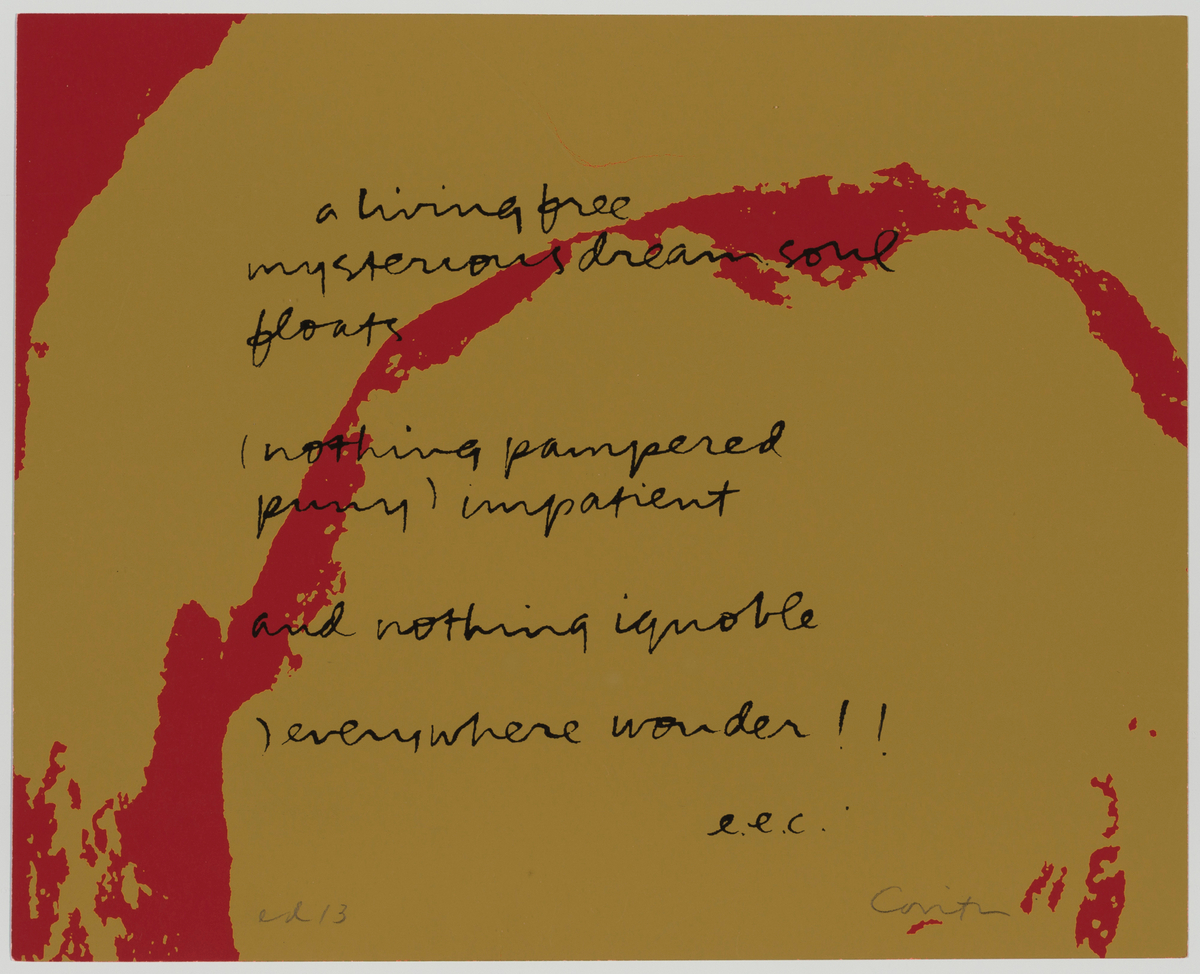 a living free
mysterious dream soul
floats
(nothing pampered
puny) impatient
and nothing ignoble
)everywhere wonder!!
e.e.c.
ed 13
Corita